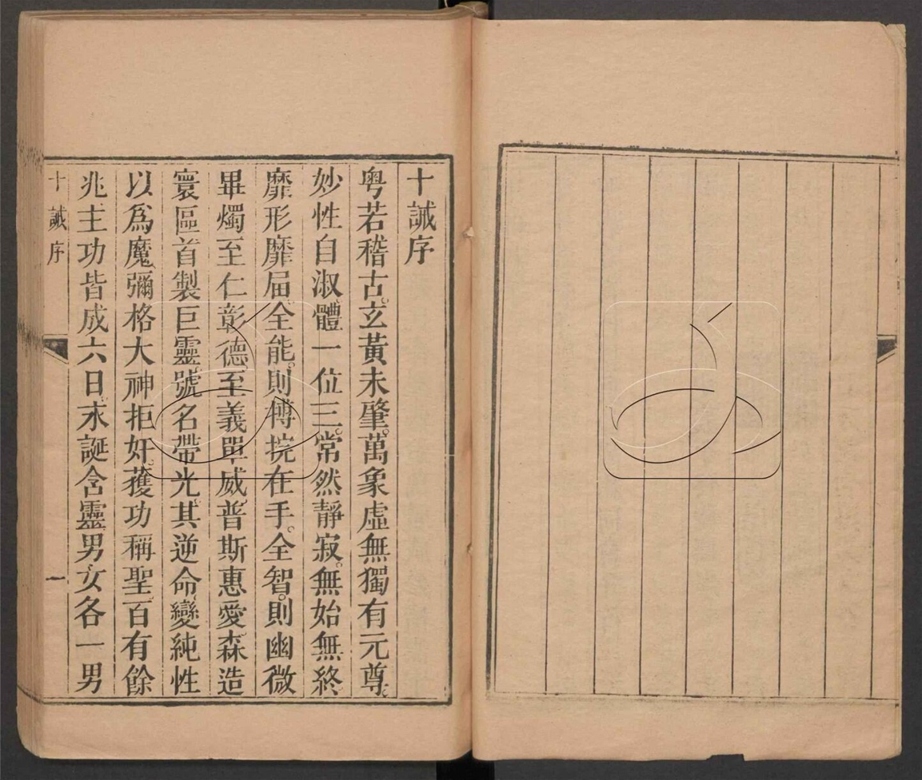 十誡序
粤若稽古。玄黃未肇。萬象虛無。獨有元尊。
妙性自淑。體一位三。常然靜寂。無始無終
靡形靡屆。全能則摶捖在手。全智則幽微
畢燭至仁彰德。至義單威。普斯惠愛。森造
寰區。首製巨靈。號名帶光。其逆命變純性
以爲魔。彌格大神拒奸。蒦功稱聖。百有餘
兆。主功皆成六日。末誕含靈。男女各一。男
十誡序
一